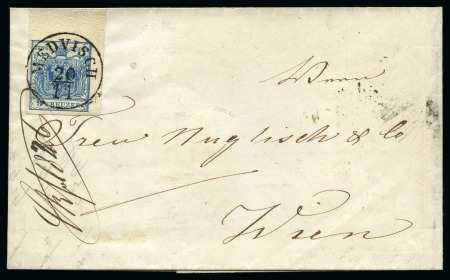 MEDVISCH
20
11
9 KREUZER
Herrn
Treu Nuglisch & Co
Wien